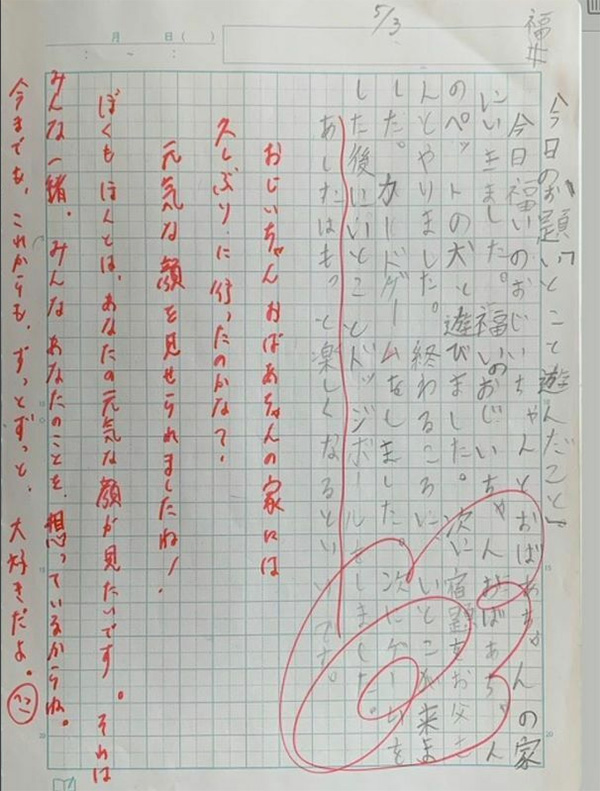 5/3
月 日( )
福井
今日のお題「いとこと遊んだこと」
今日福いのおじいちゃんとおばあちゃんの家
にいきました。福いのおじいちゃんおばあちゃん
のペットの犬と遊びました。次に宿題をお父さ
んとやりました。終わるころにいとこが来ま
した。カードゲームをしました。次にゲームを
した後にいとことドッジボールをしました。
あしたはもっと楽しくなるといいです。
おじいちゃんおばあちゃんの家には
久しぶりに行ったのかなて。
元気な顔を見せられましたね！
ぼくもほくとは、あなたの元気な顔が見たいです。それは
みんな一緒。みんなあなたのことを、想っているからね。
今までも、これからも、ずっとずっと、大好きだよ。